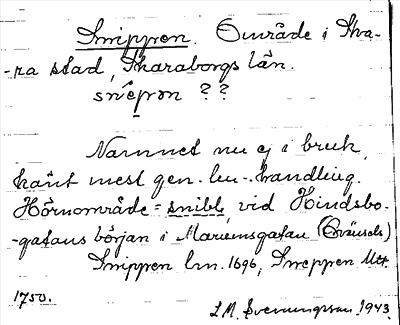 Snippen. Område i Ska-
-ra stad, Skaraborgs län.
snépm ? ?
Namnet nu ej i bruk,
känt mest gen. bm-handling.
Hörnområde = snibb, vid Hindsbo-
-gatans början i Mariumsgatan (Gränsels)
Snippen bm. 1696, Sneppen Mtr
1750.
L.M. Svenungsson 1943.